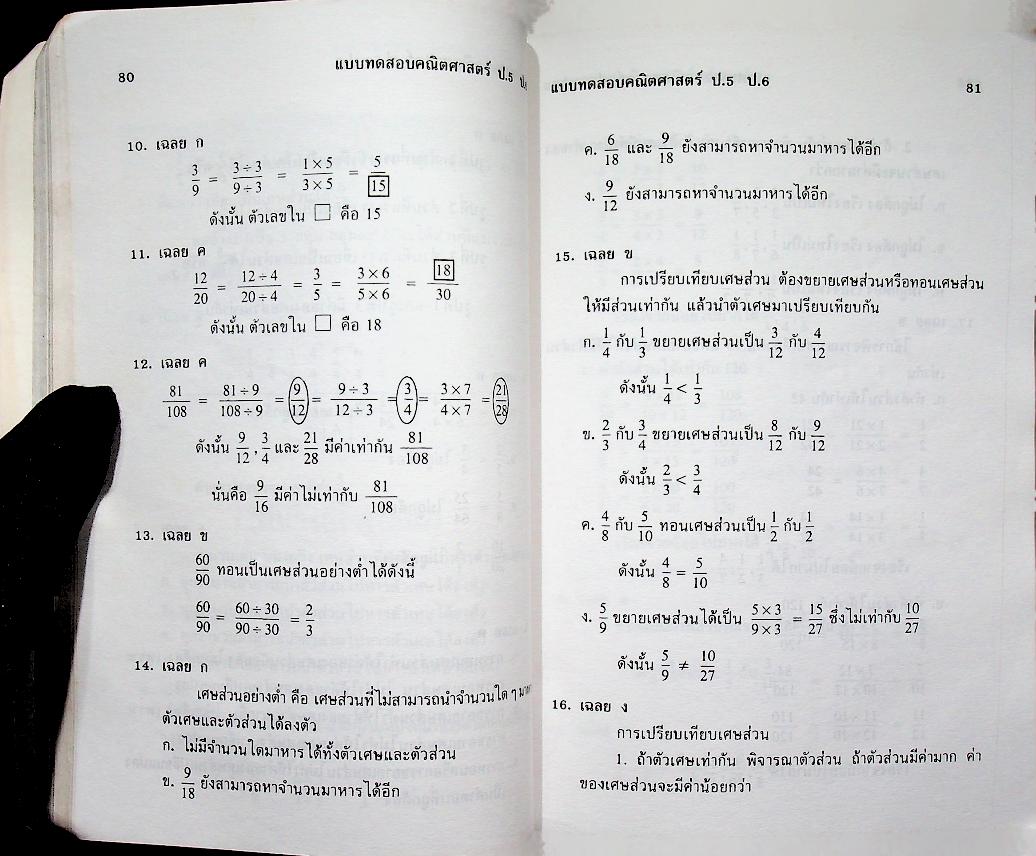 80
แบบทดสอบคณิตศาสตร์ ป.5
10. เฉลย ก
3/9 = 3÷3/9÷3 = 1×5/3×5 = 5/15
ดังนั้น ตัวเลขใน □ คือ 15
11. เฉลย ค
12/20 = 12÷4/20÷4 = 3/5 = 3×6/5×6 = 18/30
ดังนั้น ตัวเลขใน □ คือ 18
12. เฉลย ค
81/108 = 81÷9/108÷9 = 9/12 = 9÷3/12÷3 = 3/4 = 3×7/4×7 = 21/28
ดังนั้น 9/12 , 3/4 และ 21/28 มีค่าเท่ากัน 81/108
นั่นคือ 9/16 มีค่าไม่เท่ากับ 81/108
13. เฉลย ข
60/90 ทอนเป็นเศษส่วนอย่างต่ำได้ดังนี้
60/90 = 60÷30/90÷30 = 2/3
14. เฉลย ก
เศษส่วนอย่างต่ำ คือ เศษส่วนที่ไม่สามารถนำจำนวนใด ๆ
ตัวเศษและตัวส่วนได้ลงตัว
ก. ไม่มีจำนวนใดมาหารได้ทั้งตัวเศษและตัวส่วน
ข. 9/18 ยังสามารถหาจำนวนมาหารได้อีก
แบบทดสอบคณิตศาสตร์ ป.5 ป.6
81
ค. 6/18 และ 9/18 ยังสามารถหาจำนวนมาหารได้อีก
ง. 9/12 ยังสามารถหาจำนวนมาหารได้อีก
15. เฉลย ข
การเปรียบเทียบเศษส่วน ต้องขยายเศษส่วนหรือทอนเศษส่วน
ให้มีส่วนเท่ากัน แล้วนำตัวเศษมาเปรียบเทียบกัน
ก. 1/4 กับ 1/3 ขยายเศษส่วนเป็น 3/12 กับ 4/12
ดังนั้น 1/4 < 1/3
ข. 2/3 กับ 3/4 ขยายเศษส่วนเป็น 8/12 กับ 9/12
ดังนั้น 2/3 < 3/4
ค. 4/8 กับ 5/10 ทอนเศษส่วนเป็น 1/2 กับ 1/2
ดังนั้น 4/8 = 5/10
ง. 5/9 ขยายเศษส่วนได้เป็น 5×3/9×3 = 15/27 ซึ่งไม่เท่ากับ 10/27
ดังนั้น 5/9 ≠ 10/27
16. เฉลย ง
การเปรียบเทียบเศษส่วน
1. ถ้าตัวเศษเท่ากัน พิจารณาตัวส่วน ถ้าตัวส่วนมีค่ามาก ค่า
ของเศษส่วนจะมีค่าน้อยกว่า